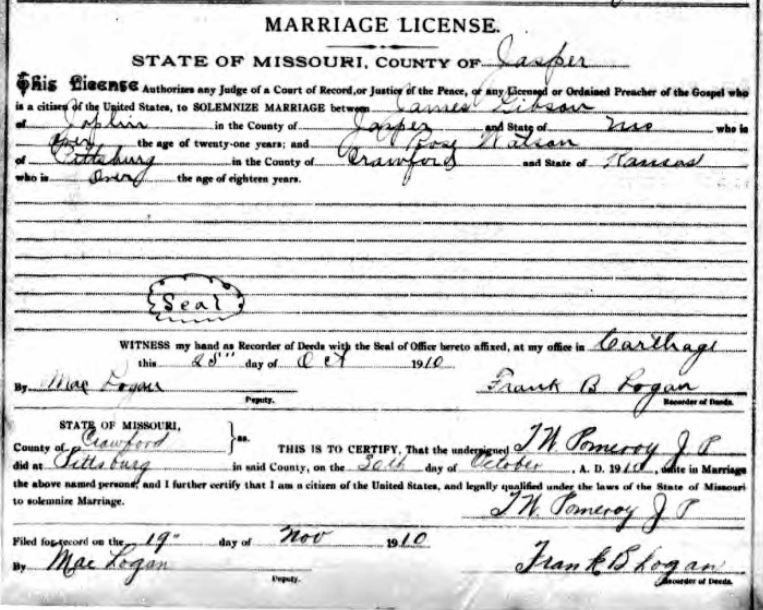 MARRIAGE LICENSE.
STATE OF MISSOURI, COUNTY OF Jasper
This License Authorizes any Judge of a Court of Record, or Justice of the Peace, or any Licensed or Ordained Preacher of the Gospel who
is a citizen of the United States, to SOLEMNIZE MARRIAGE between James Gibson
of Joplin in the County of Jasper and State of Mo who is
over the age of twenty-one years; and Rose Watson
of Pittsburg in the County of Crawford and State of Kansas
who is over the age of eighteen years.
Seal
WITNESS my hand as Recorder of Deeds with the Seal of Office hereto affixed, at my office in Carthage
this 25" day of Oct 1910
By Mae Logan Frank B Logan
Deputy. Recorder of Deeds.
STATE OF MISSOURI,
County of Crawford } ss. THIS IS TO CERTIFY, That the undersigned T W Pomeroy J P
did at Pittsburg in said County, on the 30th day of October, A. D. 1910, unite in Marriage
the above named persons, and I further certify that I am a citizen of the United States, and legally qualified under the laws of the State of Missouri
to solemnize Marriage. T W Pomeroy J P
Filed for record on the 19" day of Nov 1910
By Mae Logan Frank B Logan
Deputy. Recorder of Deeds.